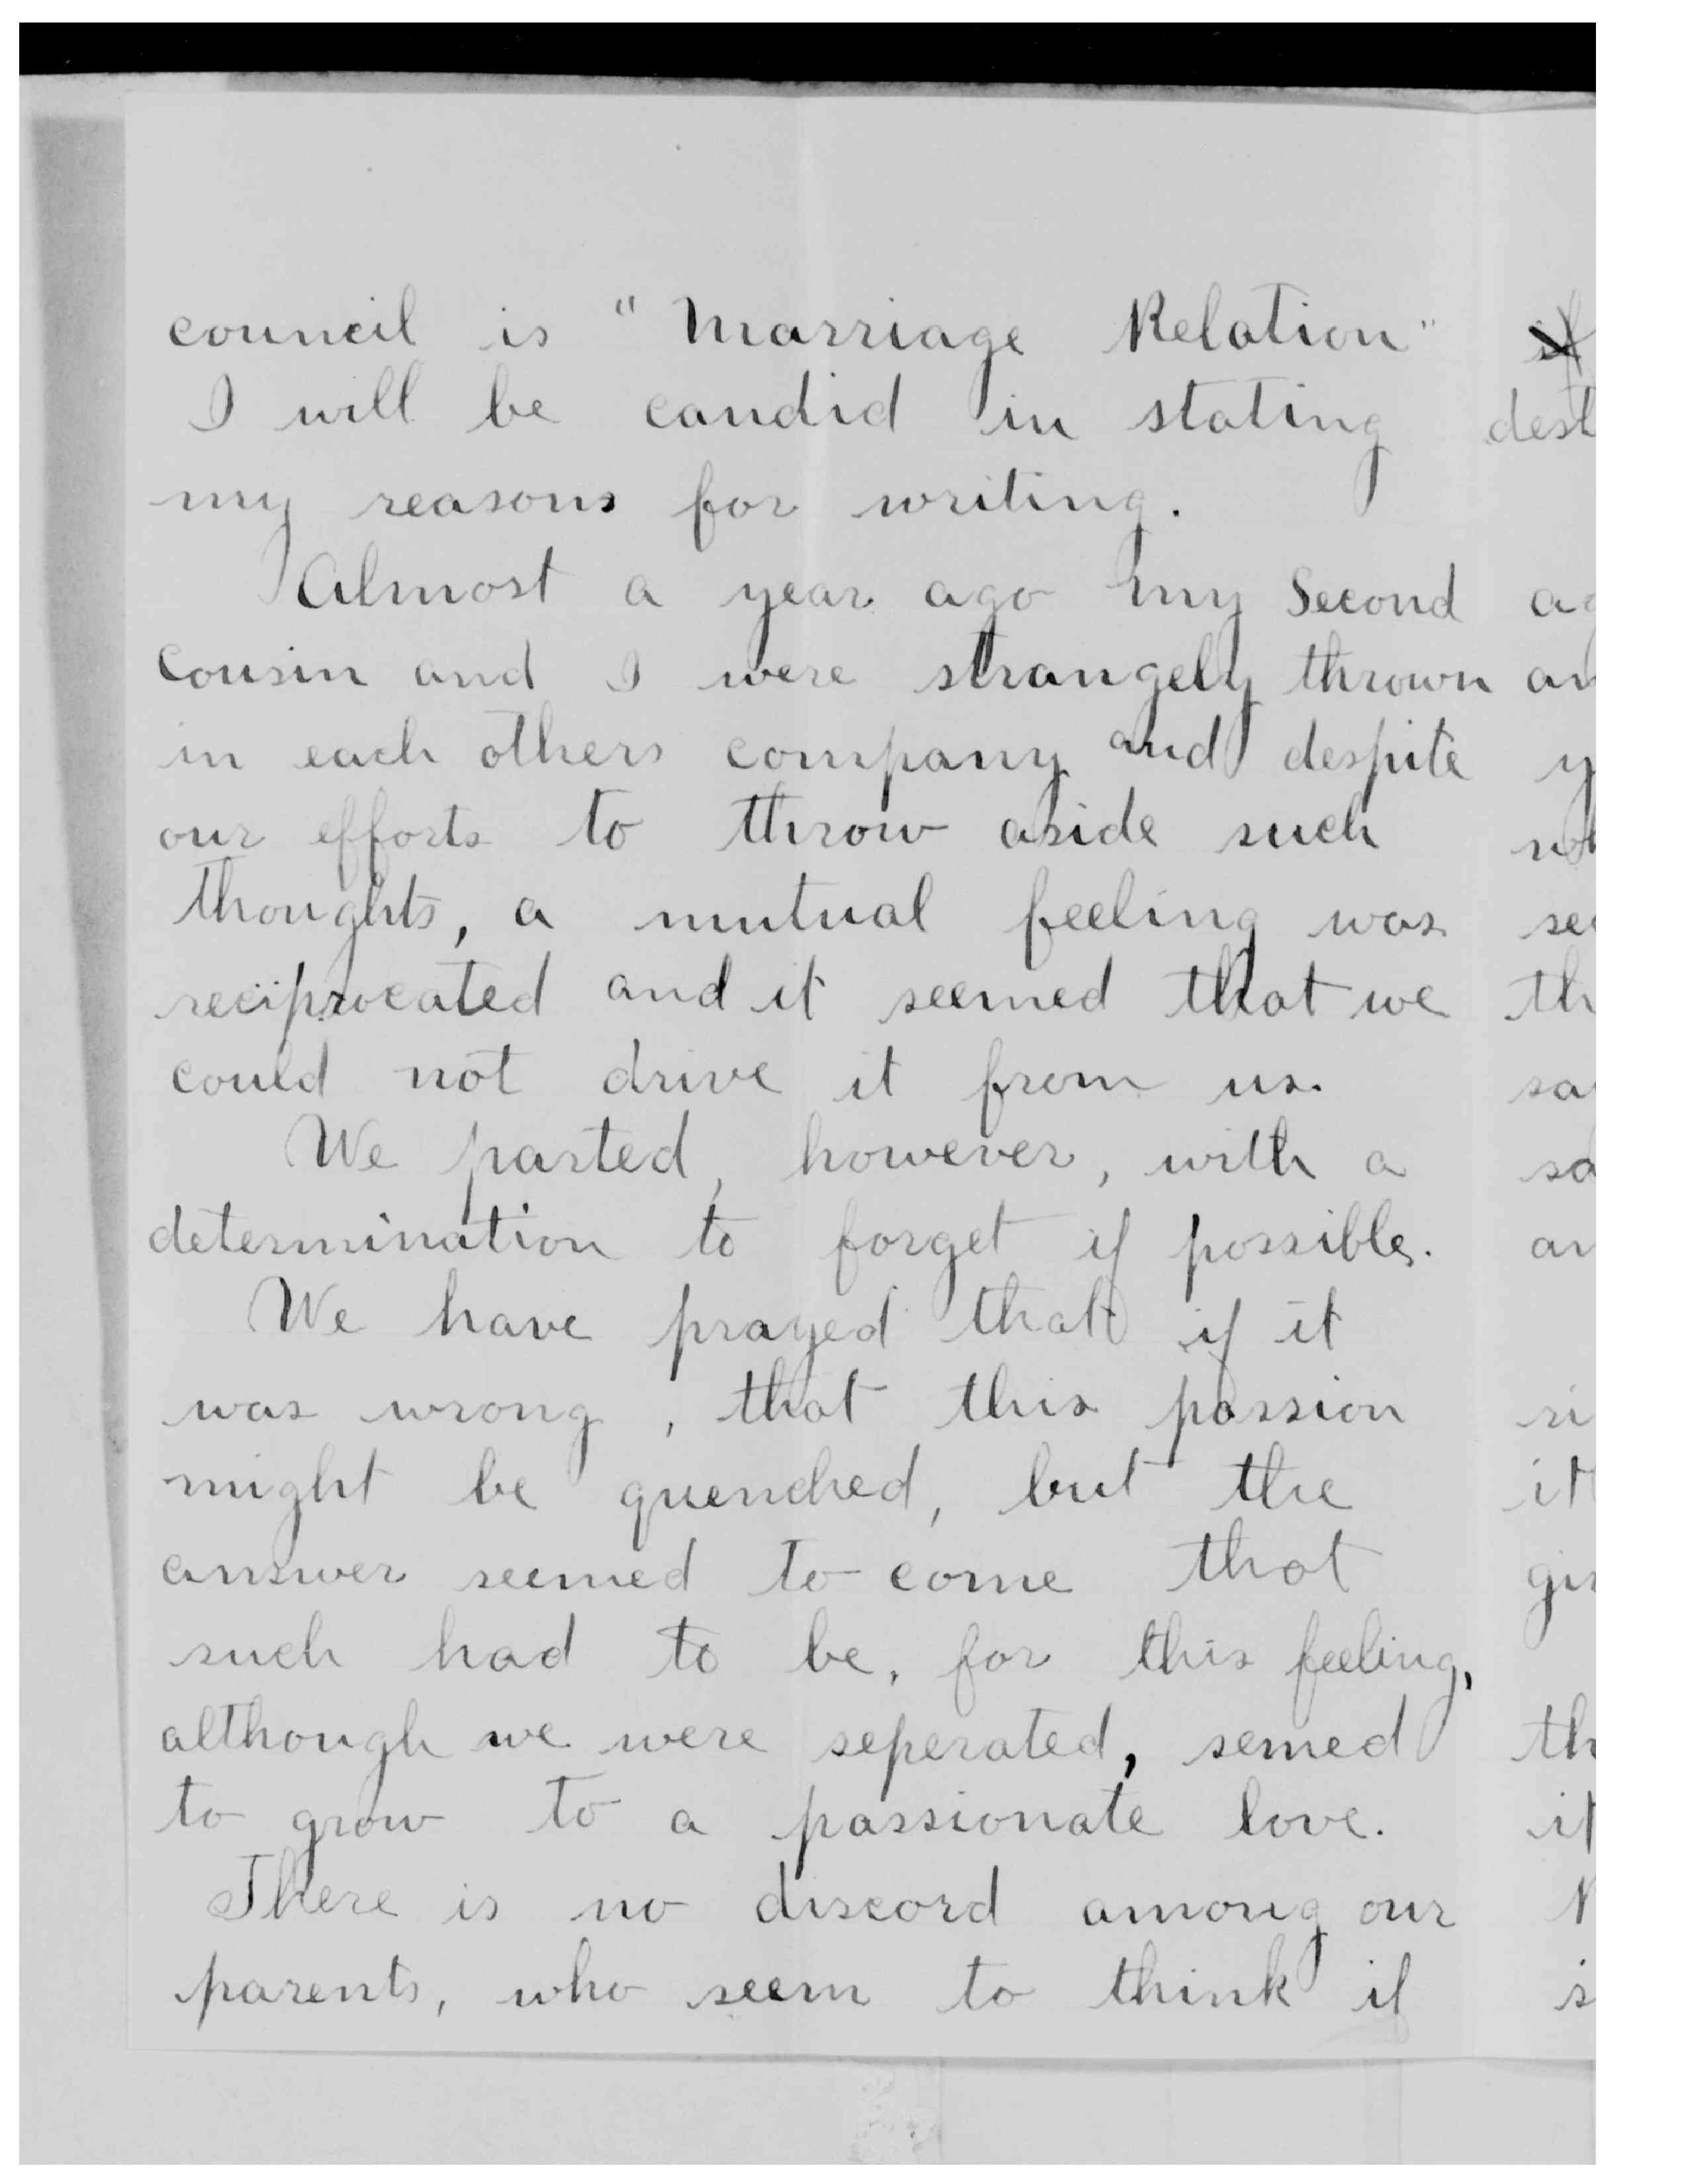 council is "Marriage Relation"
I will be candid in stating
my reasons for writing.
Almost a year ago my Second
cousin and I were strangely thrown
in each others company and despite
our efforts to throw aside such
thoughts, a mutual feeling was
reciprocated and it seemed that we
could not drive it from us.
We parted, however, with a
determination to forget if possible.
We have prayed that if it
was wrong, that this passion
might be quenched, but the
answer seemed to come that
such had to be, for this feeling,
although we were seperated, semed
to grow to a passionate love.
There is no discord among our
parents, who seem to think if